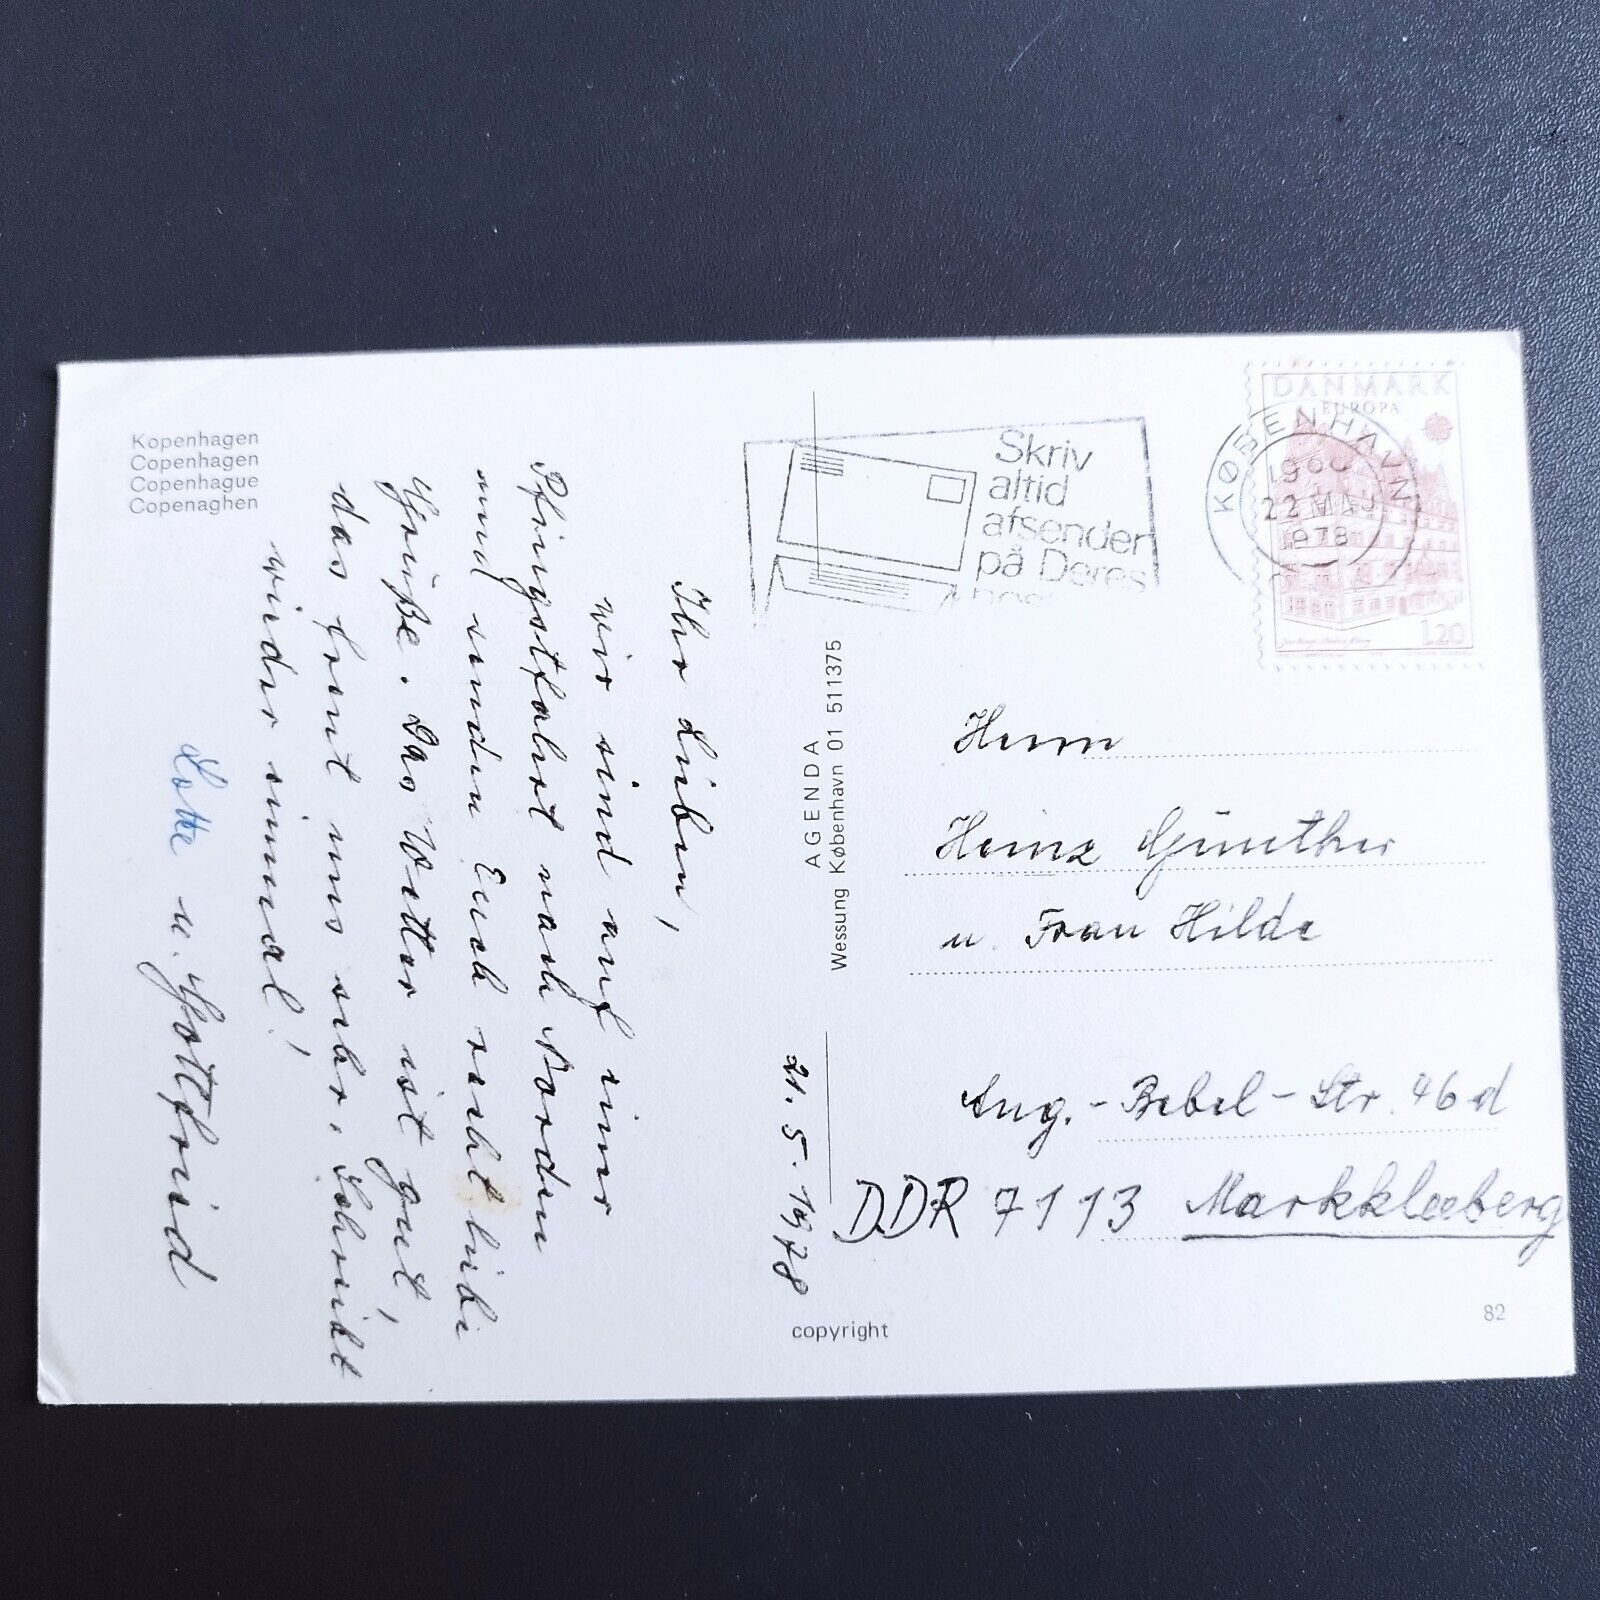 Kopenhagen
Copenhagen
Copenhague
Copenaghen
Ihr Lieben,
wir sind auf einer
Pfingstfahrt nach Norden
und senden Euch recht liebe
Grüße. Das Wetter ist gut,
das freut uns sehr. Schreibt
wieder einmal!
Lotte u. Gottfried
21.5.1978
AGENDA
Wessung København 01 511375
copyright
Skriv
altid
afsender
på Deres
KØBENHAVN
22 MAJ
1978
DANMARK
EUROPA
120
Herrn
Heinz Günther
u. Frau Hilde
Aug.-Bebel-Str. 46d
DDR 7113 Markkleeberg
82